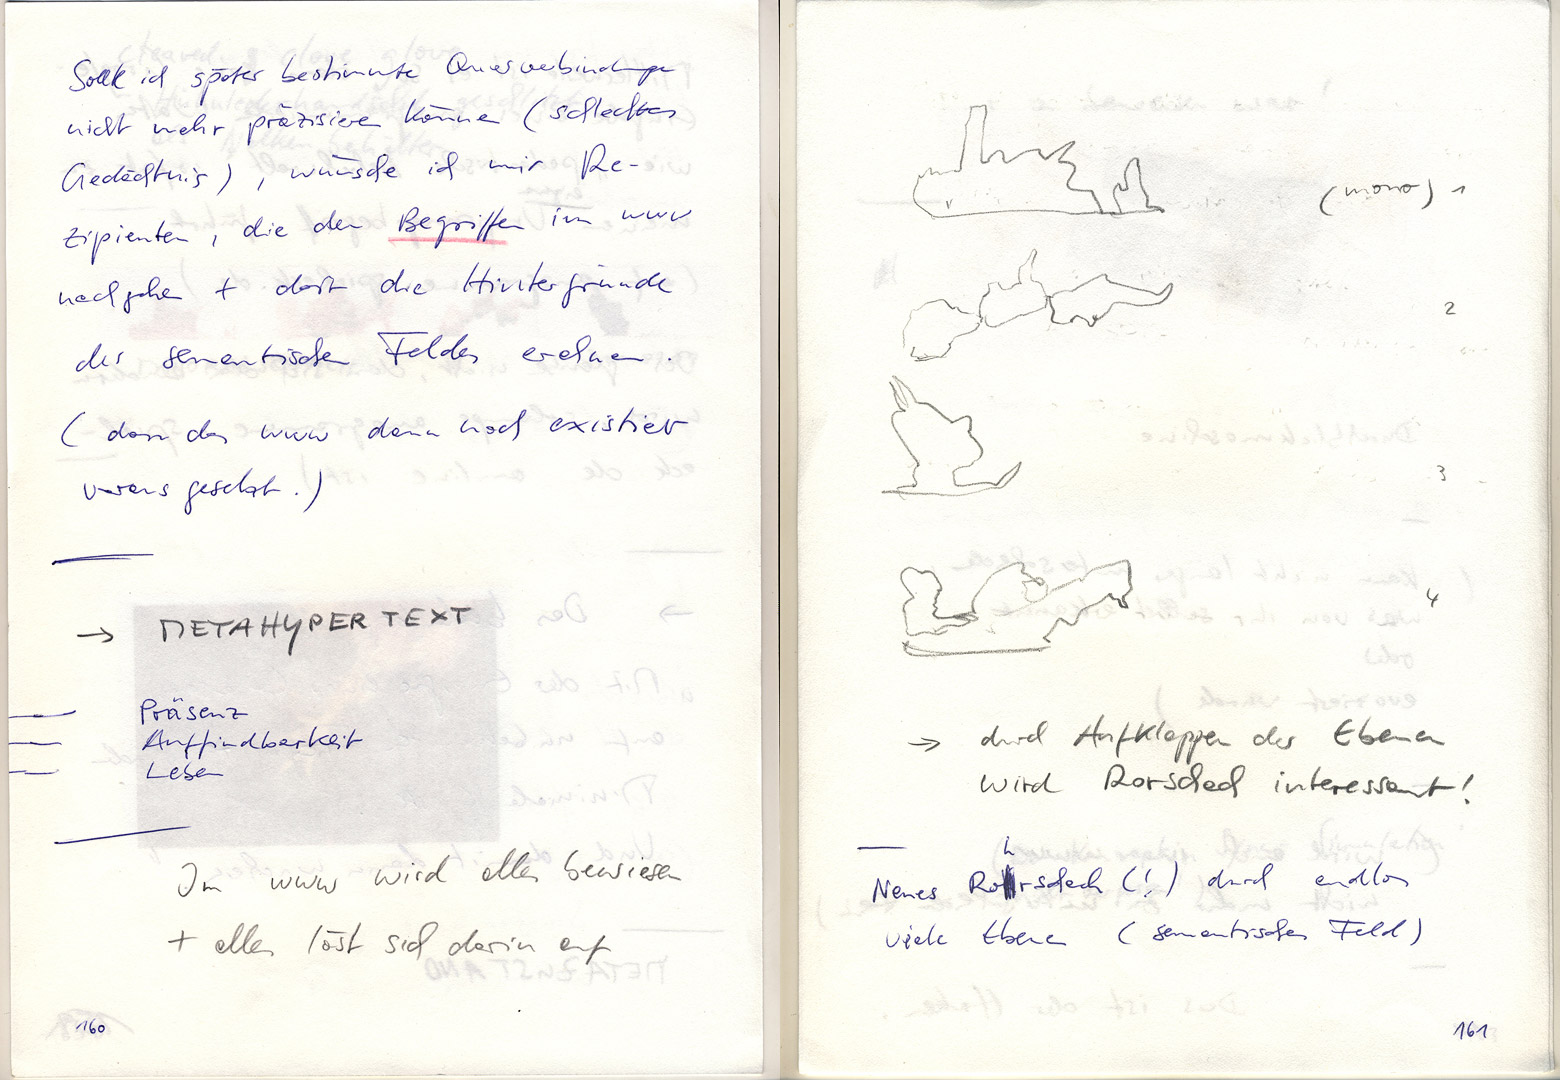 Sollte ich später bestimmte Querverbindungen
nicht mehr präzisieren können (schlechtes
Gedächtnis), wünsche ich mir Re-
zipienten, die den Begriffen im www
nachgehen + dort die Hintergründe
des semantischen Feldes erahnen.
(dass das www dann noch existiert
voraus gesetzt.)
→ METAHYPERTEXT
Präsenz
Auffindbarkeit
Leben
Im www wird alles bewiesen
+ alles löst sich darin auf
160
(mono) 1
2
3
4
→ durch Aufklappen der Ebenen
wird Rorschach interessant!
h
Neues Rorschach (!) durch endlos
viele Ebenen (semantisches Feld)
161